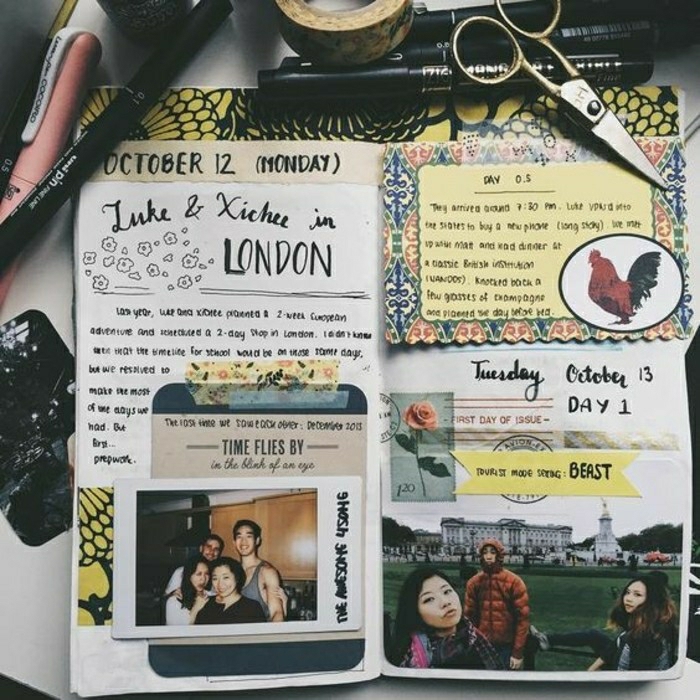 OCTOBER 12 (MONDAY)
Luke & Xichee in
LONDON
Last year, Luke and Xichee planned a 2-week European
adventure and scheduled a 2-day stop in London. I didn't know
then that the timeline for school would be on those same days,
but we resolved to
make the most
of the days we
had. But
first...
prepwork.
The last time we saw each other: December 2013
TIME FLIES BY
in the blink of an eye
THE AWESOME 4SOME
DAY 0.5
They arrived around 7:30 PM. Luke into
the states to buy a new phone (long story). We met
up with Matt and had dinner at
a classic British institution
(NANDOS). Knocked back a
few glasses of champagne
and planned the day before bed.
Tuesday October 13
DAY 1
FIRST DAY OF ISSUE
AVION
1.20
TOURIST MODE SETTING: BEAST
0.5
0.1
uni pin FINE LINE